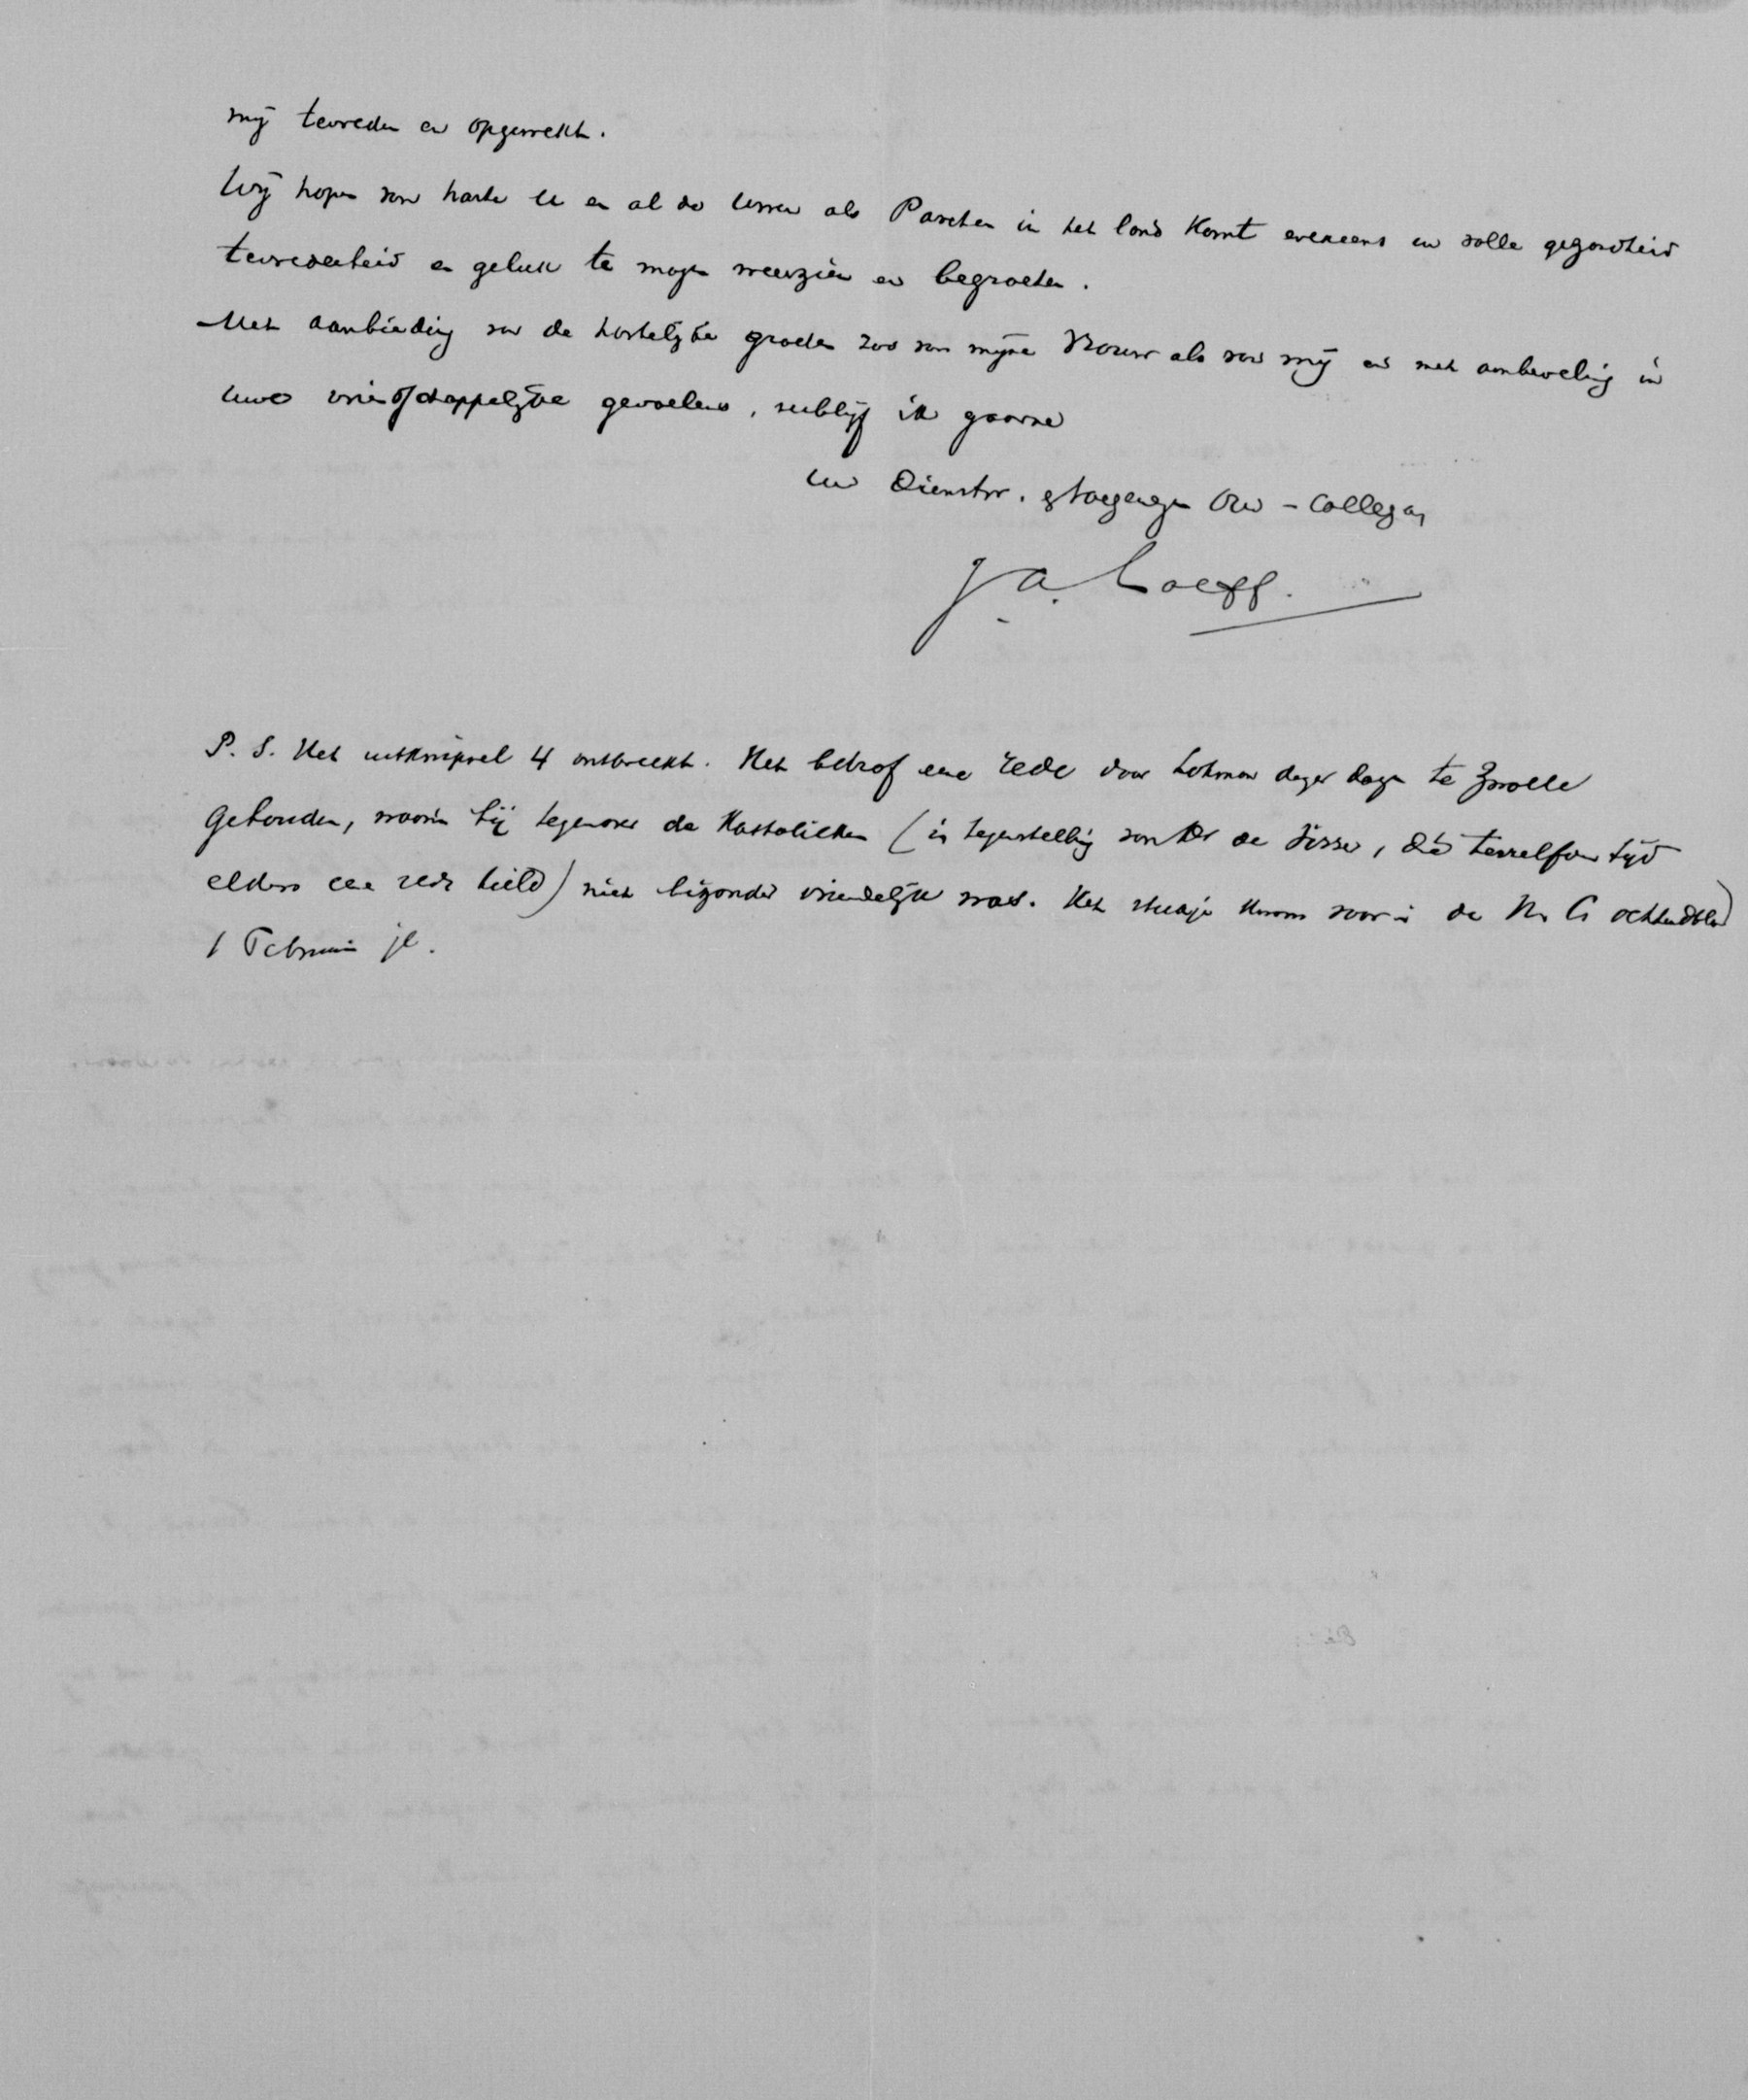 mij tevreden en opgewekt.
Wij hopen van harte U en al de Uwen als Paschen in het land komt eveneens in volle gezondheid
tevredenheid en geluk te mogen weerzien en begroeten.
Met aanbieding van de hartelijke groeten zoo van mijne Vrouw als van mij en met aanbeveling in
Uwe vriendschappelijke gevoelens, verblijf ik gaarne
Uw Dienstw. & toegenegen Oud-Collega,
J. A. Loeff.
P. S. Het uitknipsel 4 ontbreekt. Het betrof eene rede door Lohman dezer dagen te Zwolle
gehouden, waarin hij tegenover de Katholieken (in tegenstelling van de Visser, die terzelfder tijd
elders eene rede hield) niet bijzonder vriendelijk was. Het stukje kwam voor in de N. Ct ochtendblad
1 Februari jl.